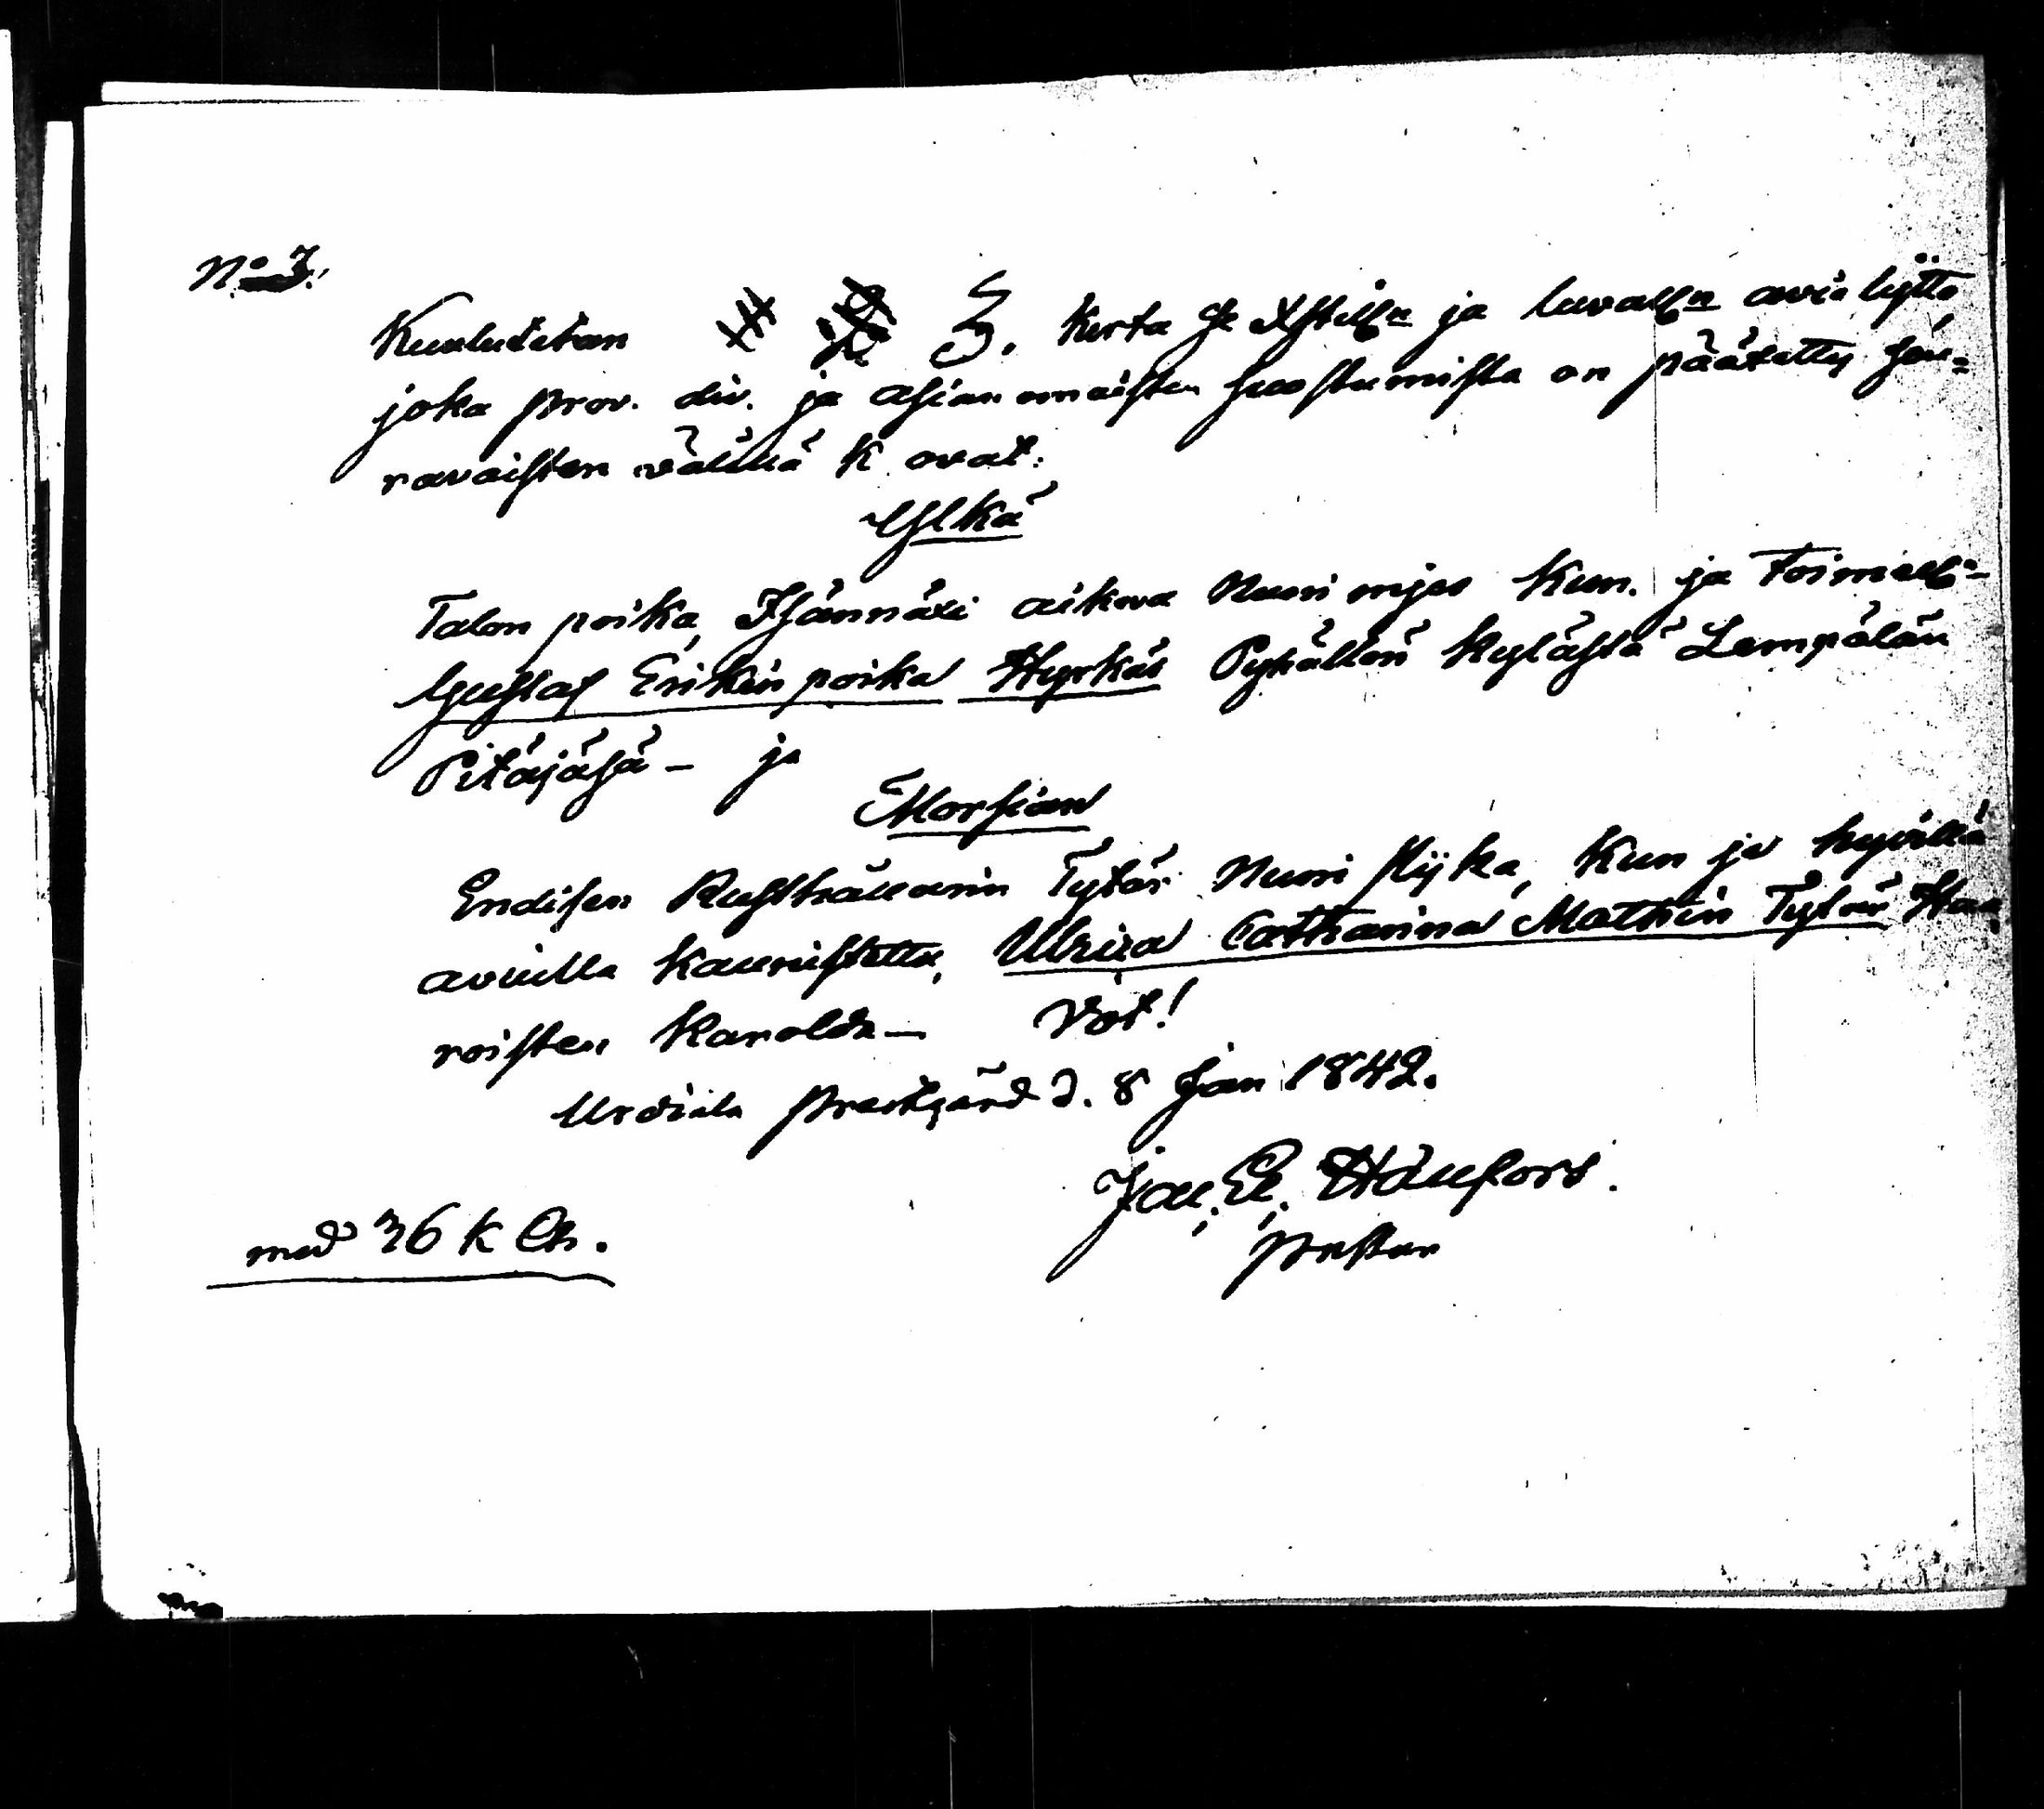 No 3.
Kuulutetan 3. Kerta se Xstillä ja luvallä avio lijtto,
joka prov. div. ja asian omaisten suostumista on päätetty seu-
ravaisten välillä k. ovat:
Ylkä
Talon poika, Isännäxi aikova Nuori mjes Kun. ja Toimelli-
Gustaf Erikin poika Hyrkäs Pyhällön kylästä Lempälän
Pitäjäsä - ja
Morsian
Endisen Rusthållarin Tytär Nuori Pijka, Kun ja hyvillä
avuilla kaunistettu, Ulrica Catharina Mathin Tytär Haa
roisten Karolda - Vot!
Urdiala prestgård d. 8 Jan 1842.
Jac. E.
med 36 k